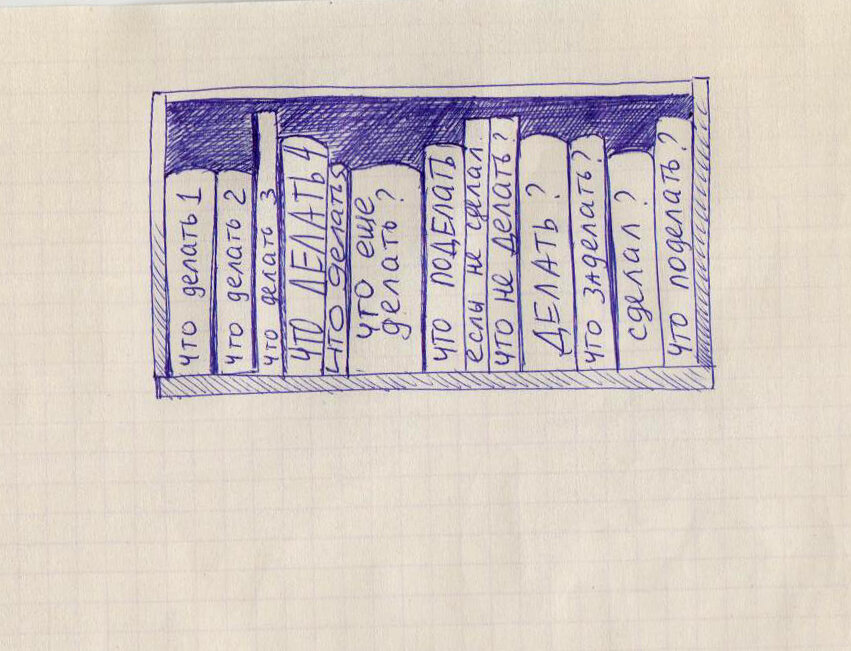 что делать 1
что делать 2
что делать 3
ЧТО ДЕЛАТЬ 4
что делать 5
что еще
делать?
что ПОДЕЛАТЬ
если не сделал
что не делать?
ДЕЛАТЬ?
что заделать?
сделал?
что поделать?